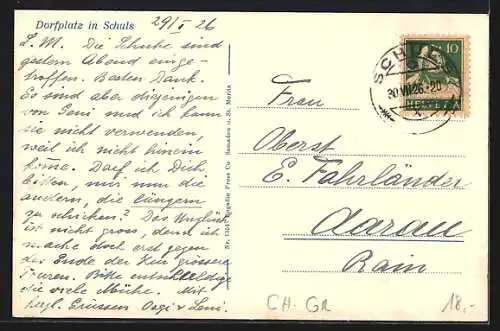 Dorfplatz in Schuls
29/ 26
L. M. Die Schuhe sind
gestern Abend einge-
troffen. Besten Dank.
Es sind aber diejenigen
von Leni und ich kann
sie nicht verwenden,
weil ich nicht hinein
komme. Darf ich Dich
bitten, mir nun die
andern, die längern
zu schicken? Das Unglück
ist nicht gross, denn ich
mache doch erst gegen
das Ende der Kur grössere
Touren. Bitte entschuldige
die viele Mühe. Mit
herzl. Grüssen Leni.
Engadin Press Co. Samaden u. St. Moritz
10
HELVETIA
SCHULS
30.VII.26-20
Frau
Oberst
E. Fahrländer
Aarau
Rain
CH-GR
18,-